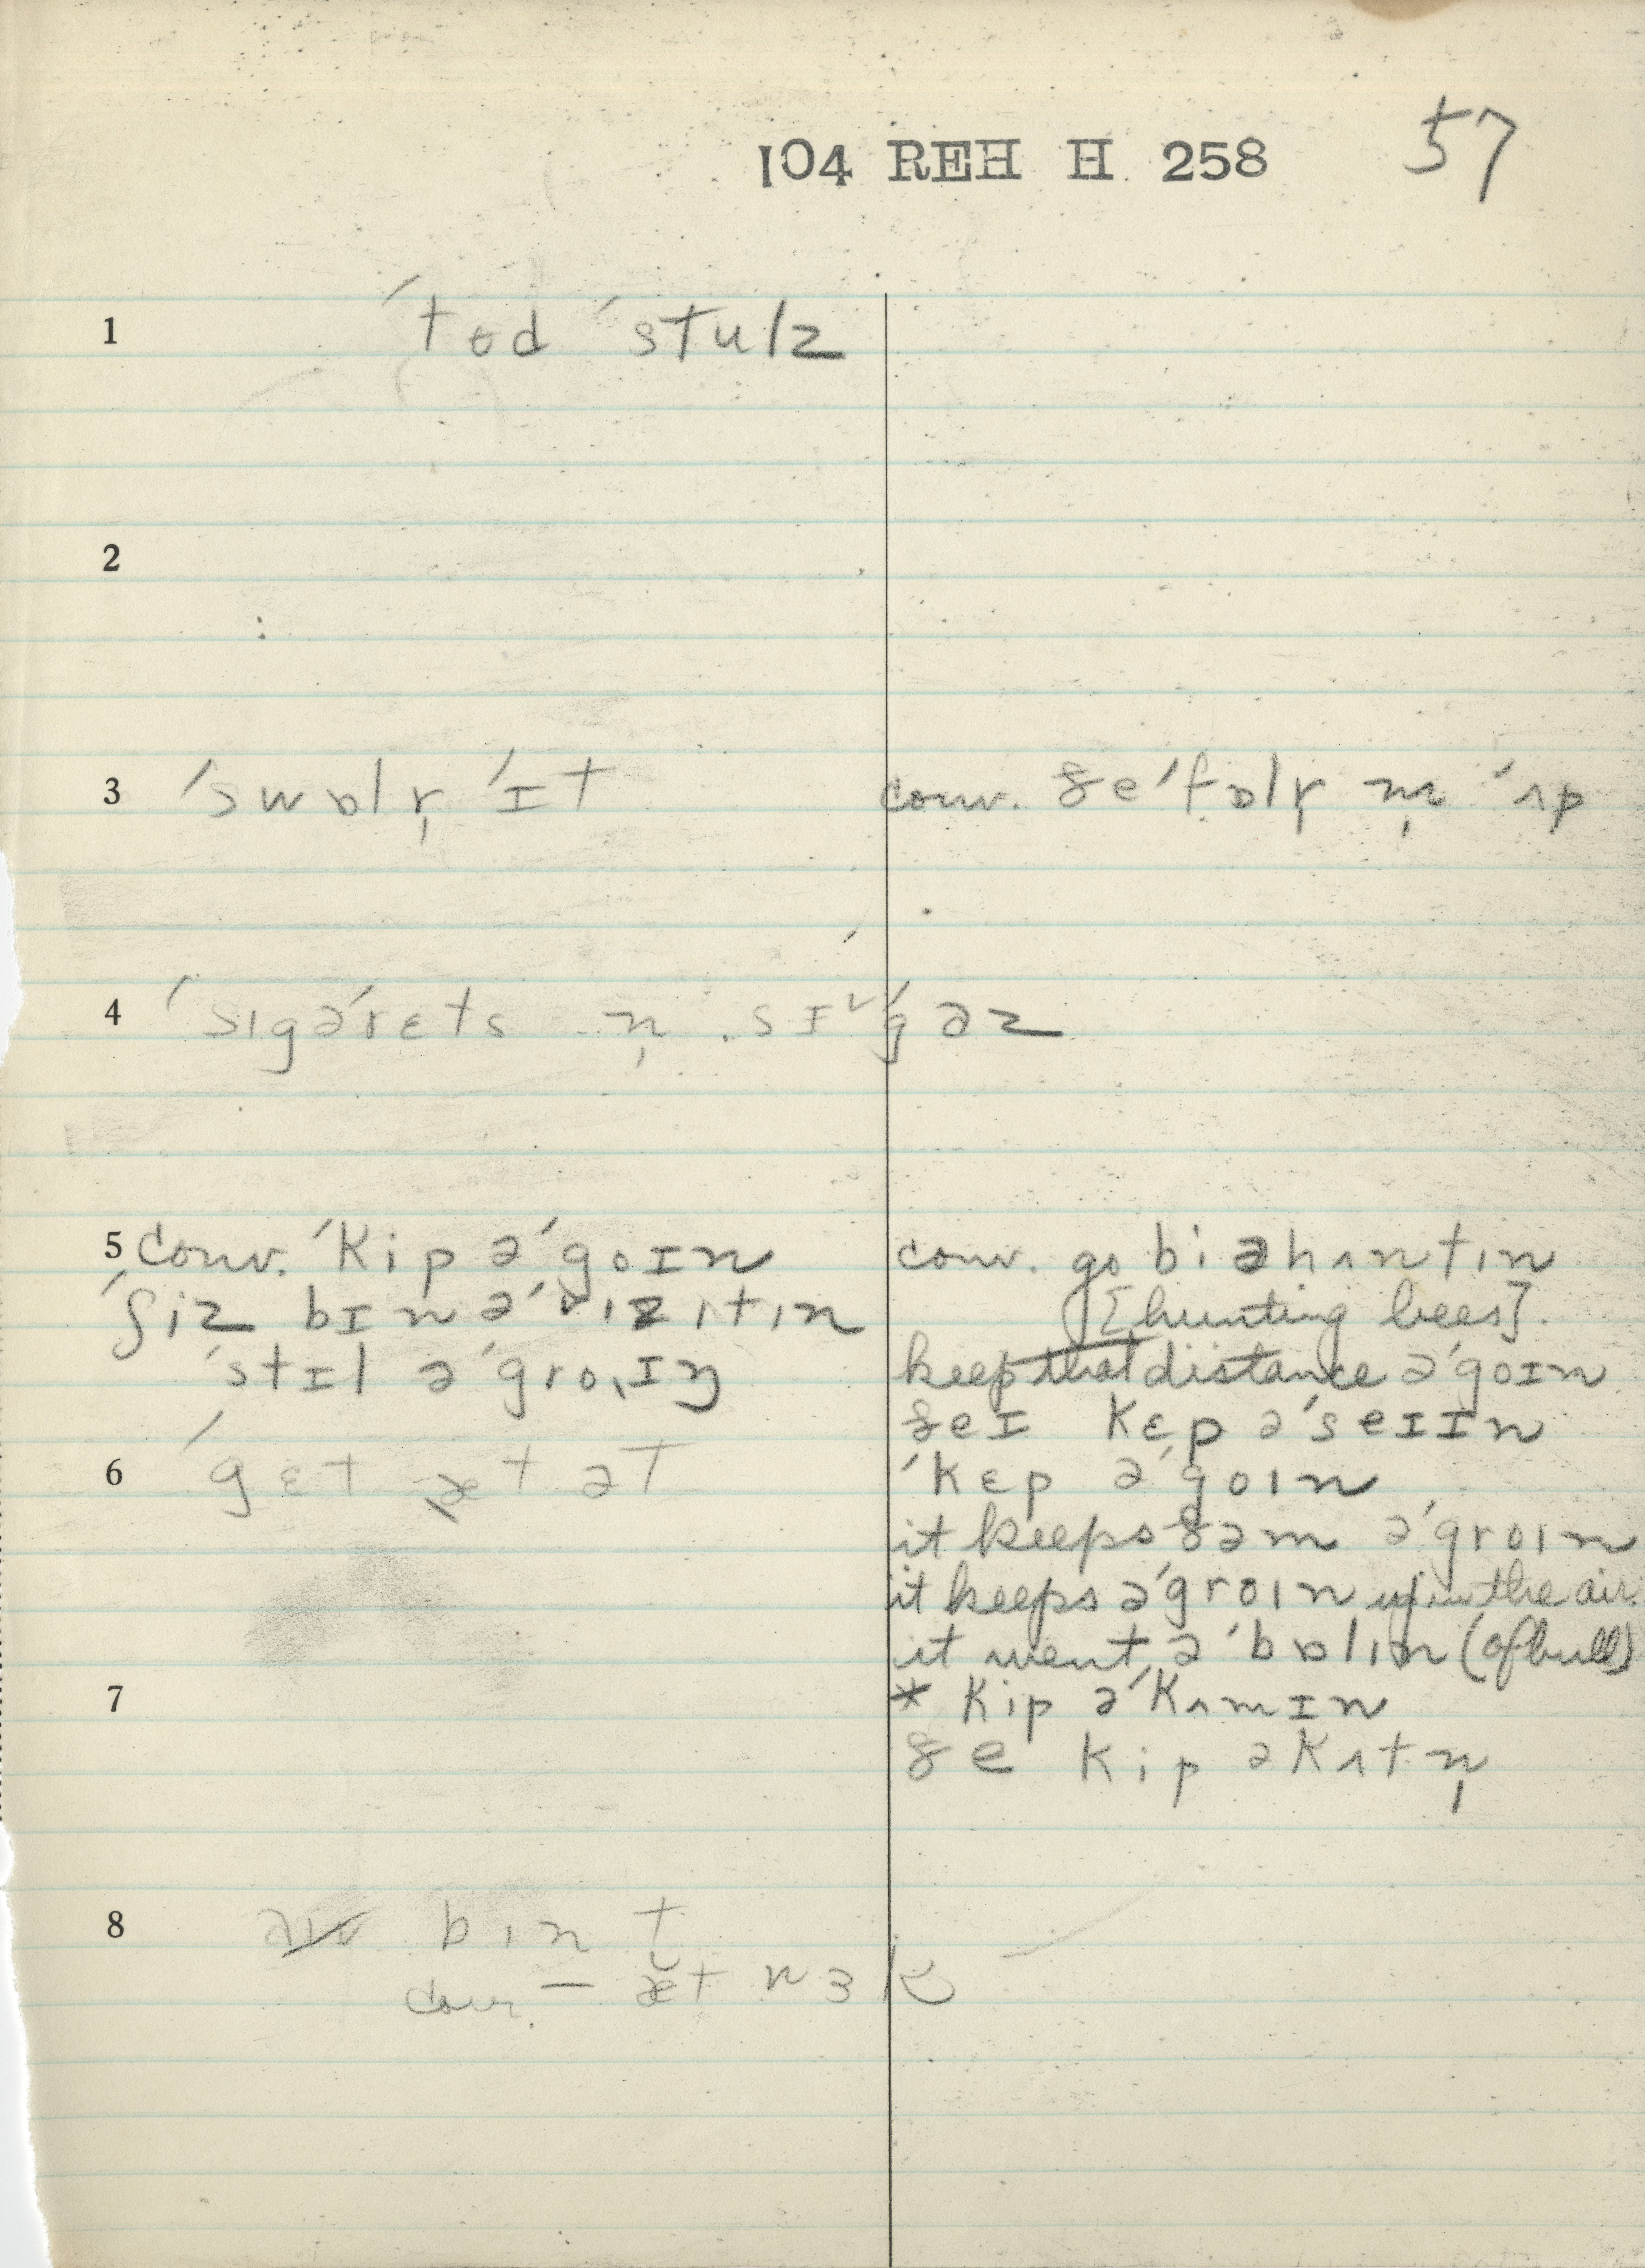 104 REH H 258 57
1 ˈtɵd ˈstulz
2
3 ˈswɒlr̩ ˈɪt conv. ðeˈfɒlr̩ m̩ ˈʌp
4 ˈsɪgəˈrɛts n̩ sɪˇˈgəz
5 conv. ˈkip əˈgoɪn conv. go biəhʌntɪn
ˈʃiz bɪnəˈvɪzɪtɪn [hunting bees].
ˈstɪl əˈgroɪŋ keep that distance əˈgoɪn
ðeɪ kɛp əˈseɪɪn
6 ˈgɛt æt ət ˈkɛp əˈgoɪn
it keeps ðəm əˈgroɪn
it keeps əˈgroɪn up in the air.
it went əˈbɒlɪn (of bull)
7 * kip əˈkʌmɪn
ðe kip əkʌtn̩
8 bɪnt
conv. — æ̆t nɜk